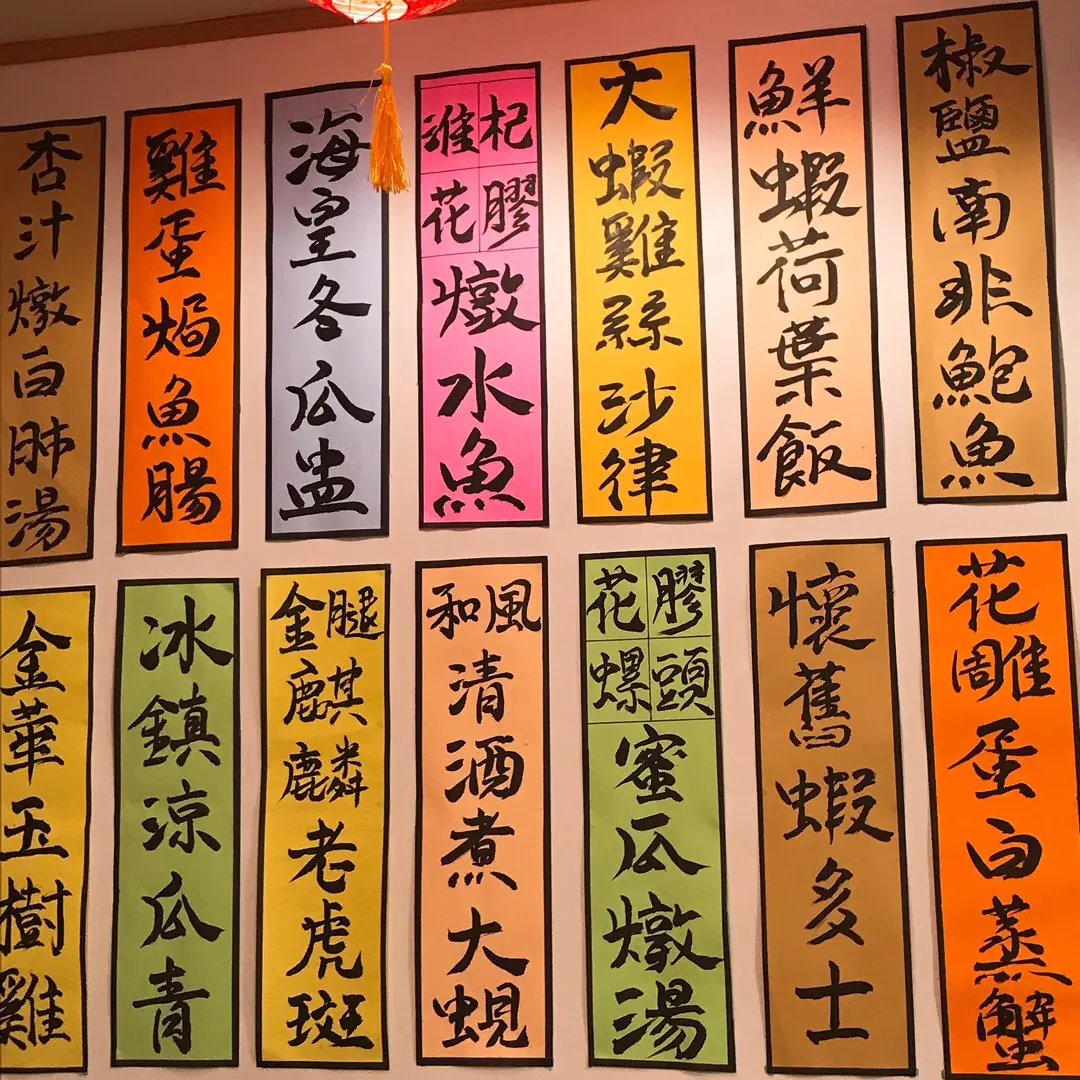 杏汁燉白肺湯
雞蛋焗魚腸
海皇冬瓜盅
淮杞花膠燉水魚
大蝦雞絲沙律
鮮蝦荷葉飯
椒鹽南非鮑魚
金華玉樹雞
冰鎮涼瓜青
金腿麒麟老虎斑
和風清酒煮大蜆
花膠螺頭蜜瓜燉湯
懷舊蝦多士
花雕蛋白蒸蟹